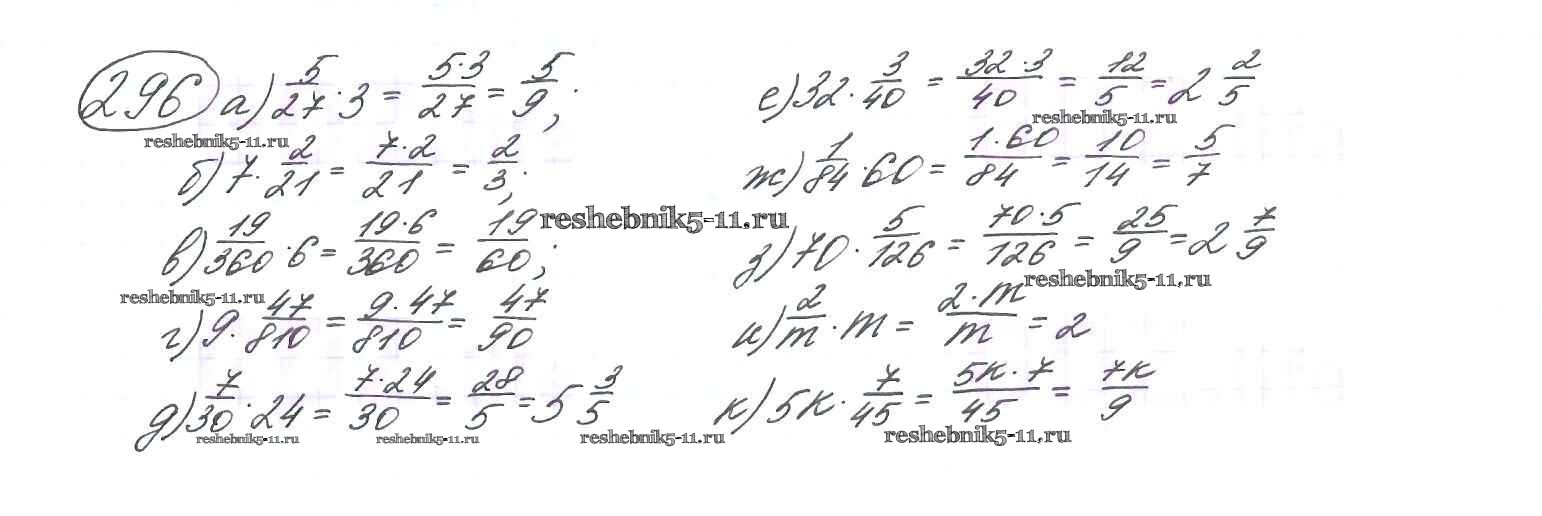 296 а) 5/27 · 3 = 5·3/27 = 5/9;
reshebnik5-11.ru
б) 7 · 2/21 = 7·2/21 = 2/3;
в) 19/360 · 6 = 19·6/360 = 19/60;
reshebnik5-11.ru
reshebnik5-11.ru
г) 9 · 47/810 = 9·47/810 = 47/90
д) 7/30 · 24 = 7·24/30 = 28/5 = 5 3/5
reshebnik5-11.ru
reshebnik5-11.ru
reshebnik5-11.ru
е) 32 · 3/40 = 32·3/40 = 12/5 = 2 2/5
reshebnik5-11.ru
ж) 1/84 · 60 = 1·60/84 = 10/14 = 5/7
з) 70 · 5/126 = 70·5/126 = 25/9 = 2 7/9
reshebnik5-11.ru
и) 2/m · m = 2·m/m = 2
к) 5к · 7/45 = 5к·7/45 = 7к/9
reshebnik5-11.ru